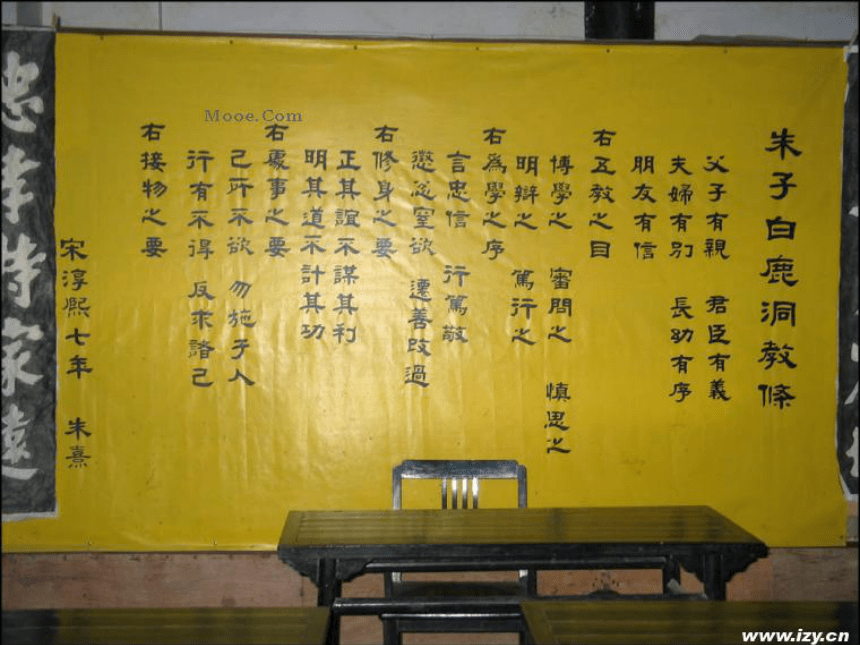 朱子白鹿洞教條
父子有親 君臣有義
夫婦有別 長幼有序
朋友有信
右五教之目
博學之 審問之 慎思之
明辯之 篤行之
右爲學之序
言忠信 行篤敬
懲忿窒欲 遷善改過
右修身之要
正其誼不謀其利
明其道不計其功
右處事之要
己所不欲 勿施于人
行有不得 反求諸己
右接物之要
宋淳熙七年 朱熹
忠孝持家遠
Mooe.Com
www.izy.cn